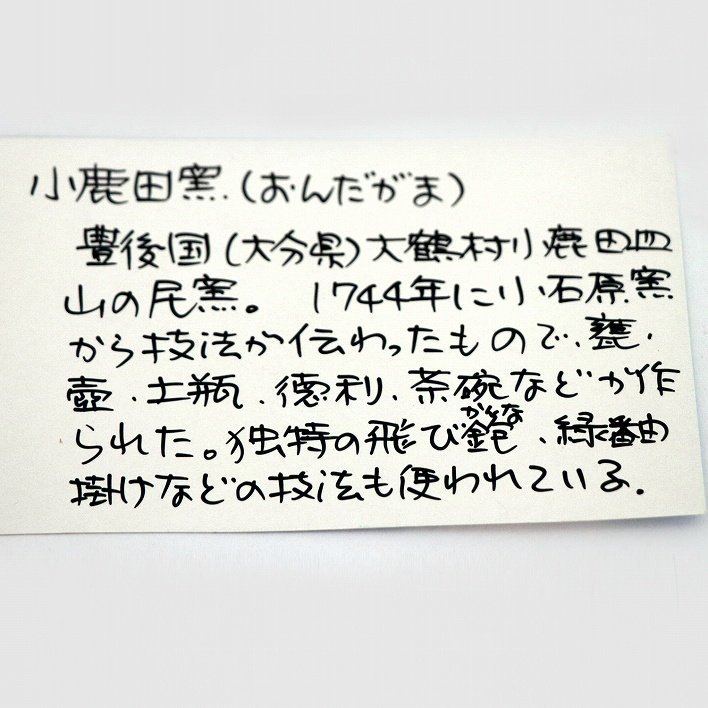 小鹿田窯.(おんだがま)
豊後国(大分県)大鶴村小鹿田皿
山の民窯。 1744年に小石原窯
から技法が伝わったもので、甕・
壺・土瓶・徳利・茶碗などが作
られた。独特の飛び鉋、緑釉
かんな
掛けなどの技法も使われている.